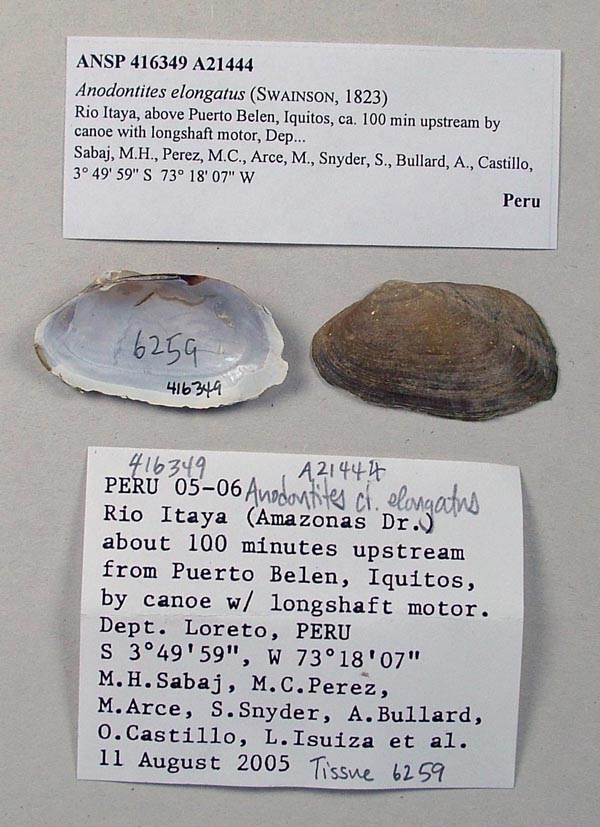 ANSP 416349 A21444
Anodontites elongatus (SWAINSON, 1823)
Rio Itaya, above Puerto Belen, Iquitos, ca. 100 min upstream by
canoe with longshaft motor, Dep...
Sabaj, M.H., Perez, M.C., Arce, M., Snyder, S., Bullard, A., Castillo,
3° 49' 59" S 73° 18' 07" W
Peru
6259
416349
416349 A21444
PERU 05-06 Anodontites cf. elongatus
Rio Itaya (Amazonas Dr.)
about 100 minutes upstream
from Puerto Belen, Iquitos,
by canoe w/ longshaft motor.
Dept. Loreto, PERU
S 3°49'59", W 73°18'07"
M.H.Sabaj, M.C.Perez,
M.Arce, S.Snyder, A.Bullard,
O.Castillo, L.Isuiza et al.
11 August 2005 Tissue 6259